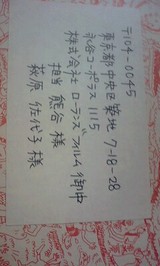 〒104-0045
東京都中央区築地 7-10-28
永谷コーポラス 1115
株式会社 ローランズフィルム 御中
担当 熊谷様
萩原 佐代子様